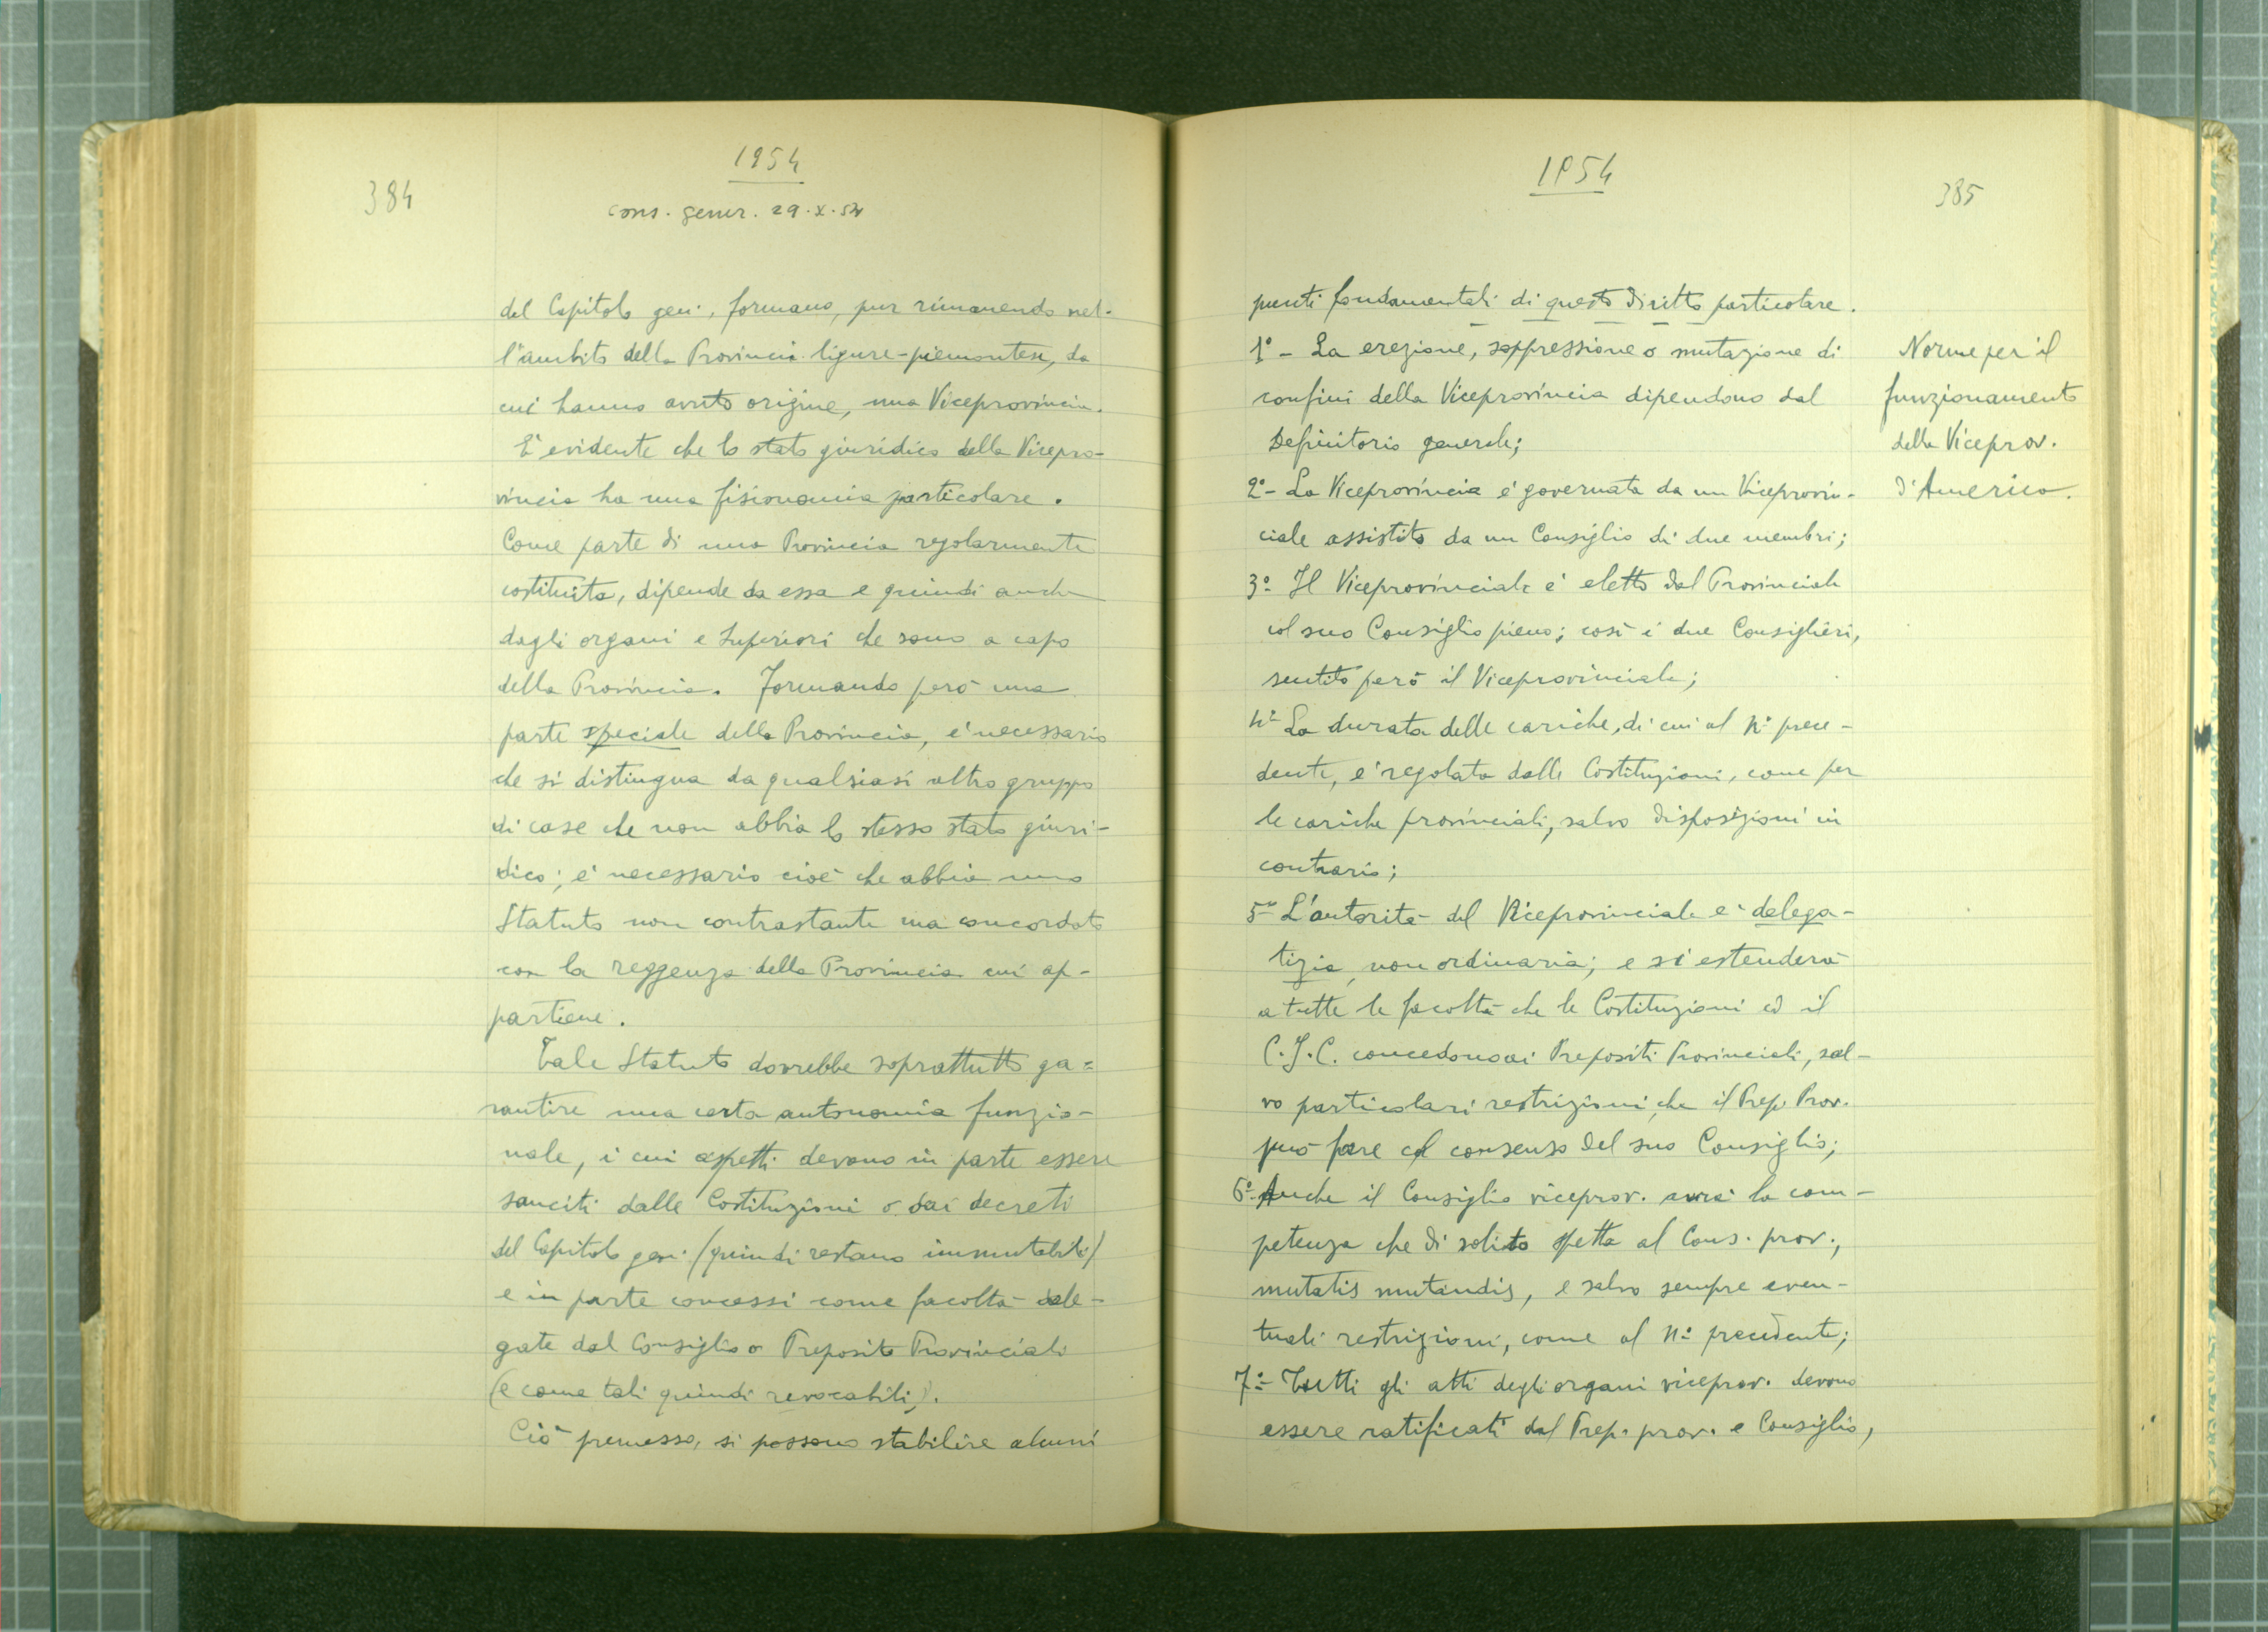 384
1954
cons. gener. 29.X.54
del Capitolo gen., formano, pur rimanendo nel-
l'ambito della Provincia ligure-piemontese, da
cui hanno avuto origine, una Viceprovincia.
È evidente che lo stato giuridico della Vicepro-
vincia ha una fisionomia particolare.
Come parte di una Provincia regolarmente
costituita, dipende da essa e quindi anche
dagli organi e Superiori che sono a capo
della Provincia. Formando però una
parte speciale della Provincia, è necessario
che si distingua da qualsiasi altro gruppo
di case che non abbia lo stesso stato giuri-
dico; è necessario cioè che abbia uno
Statuto non contrastante ma concordato
con la reggenza della Provincia cui ap-
partiene.
Tale Statuto dovrebbe soprattutto ga=
rantire una certa autonomia funzio-
nale, i cui aspetti devono in parte essere
sanciti dalle Costituzioni o dai decreti
del Capitolo gen. (quindi restano immutabili)
e in parte concessi come facoltà dele-
gate dal Consiglio o Preposito Provinciali
(e come tali quindi revocabili).
Ciò premesso, si possono stabilire alcuni
1954
385
punti fondamentali di questo diritto particolare.
1° - La erezione, soppressione o mutazione di
confini della Viceprovincia dipendono dal
Definitorio generale;
2° - La Viceprovincia è governata da un Viceprovin-
ciale assistito da un Consiglio di due membri;
3° - Il Viceprovinciale è eletto dal Provinciale
col suo Consiglio pieno; così i due Consiglieri,
sentito però il Viceprovinciale;
4° La durata delle cariche, di cui al n° prece-
dente, è regolata dalle Costituzioni, come per
le cariche provinciali, salvo disposizioni in
contrario;
5° - L'autorità del Viceprovinciale è delega-
tizia, non ordinaria; e si estenderà
a tutte le facoltà che le Costituzioni ed il
C.J.C. concedono ai Prepositi Provinciali, sal-
vo particolari restrizioni che il Prep. Prov.
può fare col consenso del suo Consiglio;
6° - Anche il Consiglio viceprov. avrà la com-
petenza che di solito spetta al Cons. prov.,
mutatis mutandis, e salvo sempre even-
tuali restrizioni, come al n° precedente;
7° - Tutti gli atti degli organi viceprov. devono
essere ratificati dal Prep. prov. e Consiglio,
Norme per il
funzionamento
della Viceprov.
d'America.